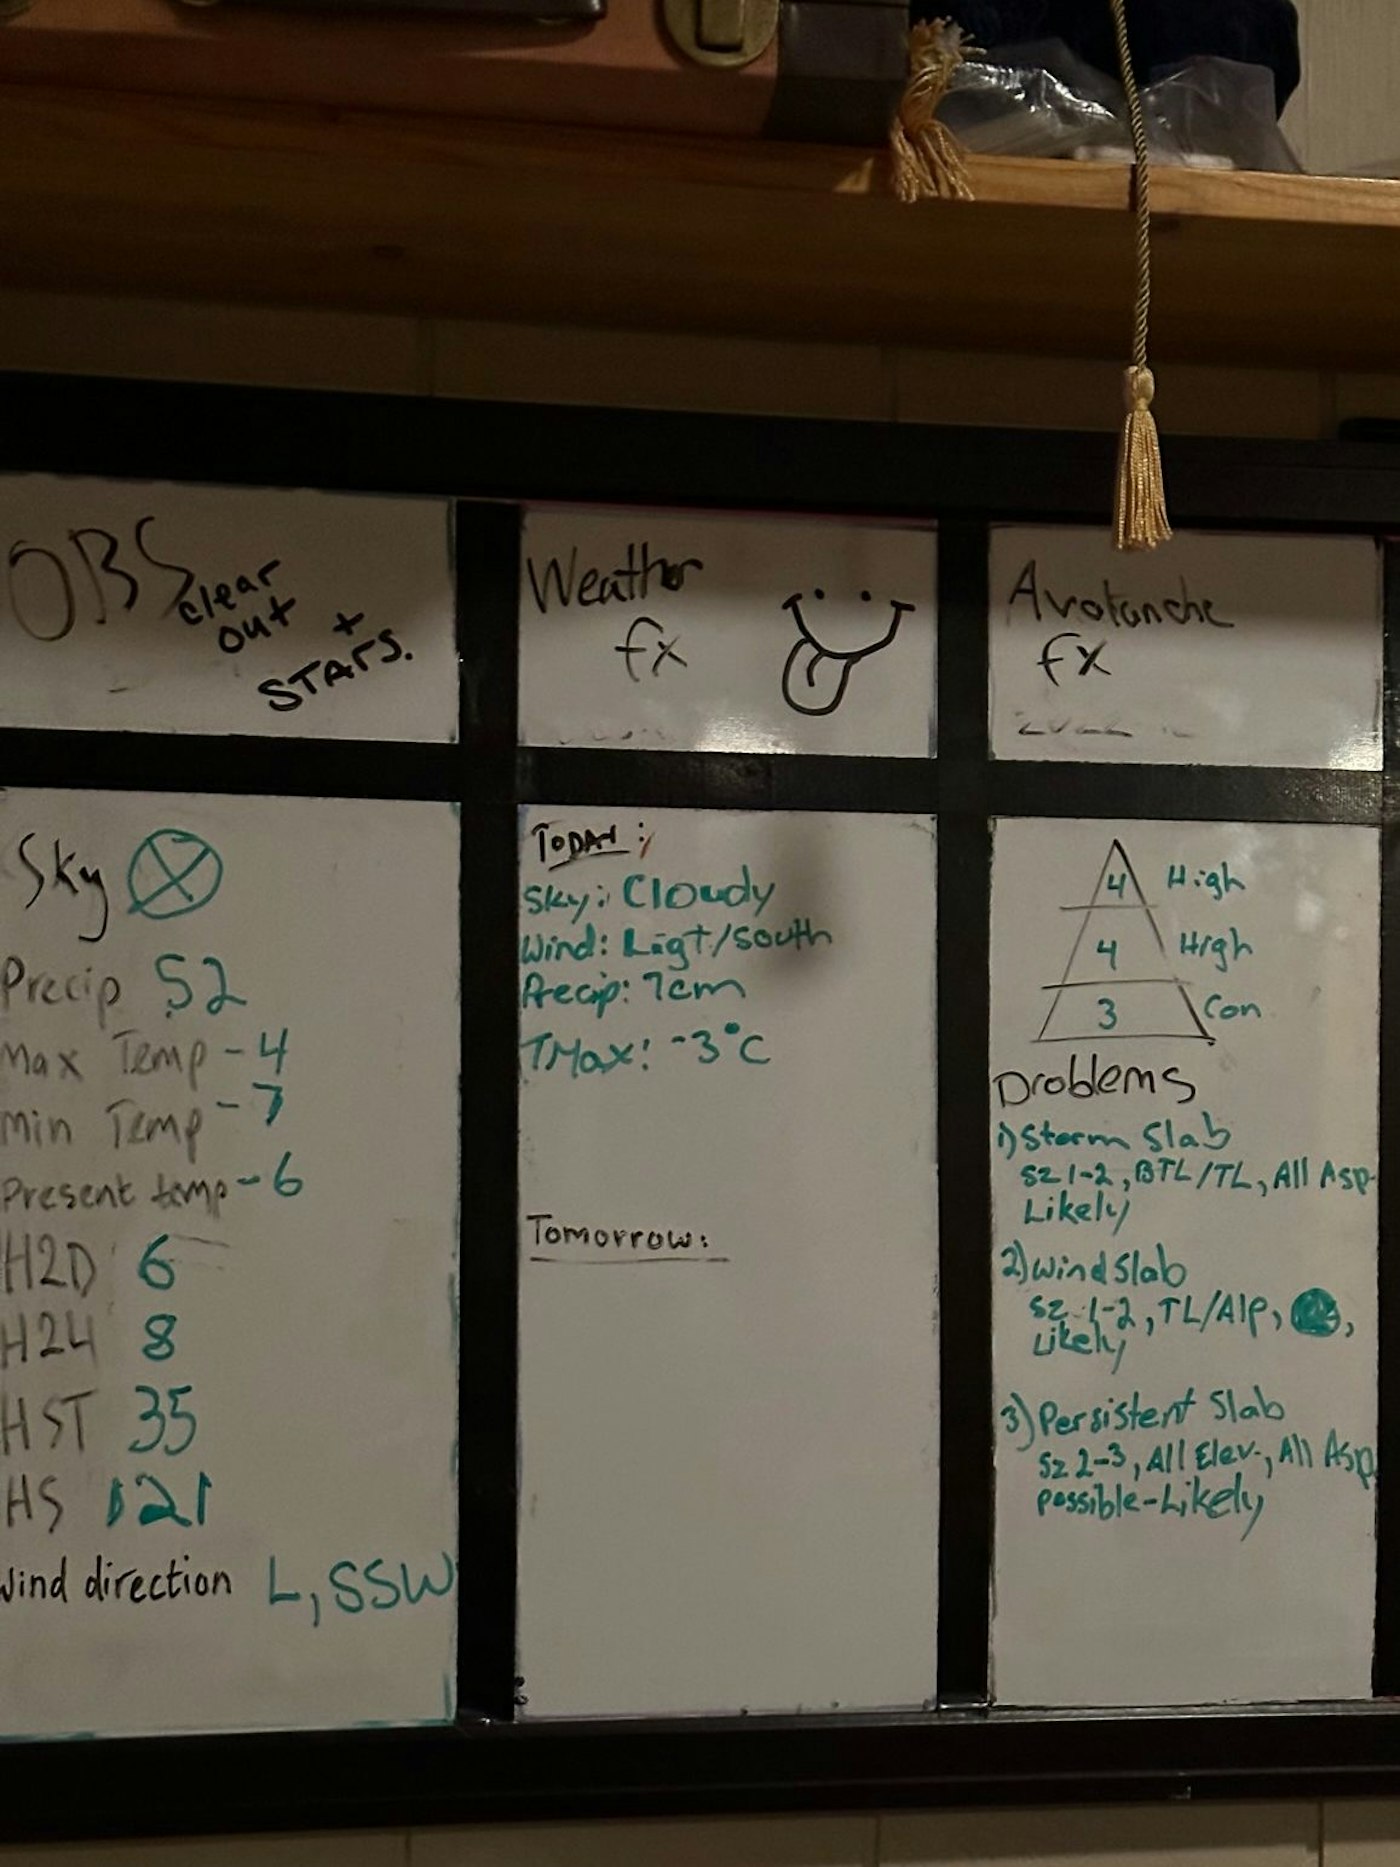 OBS
clear
out +
STARS.
Sky
Precip S2
Max Temp -4
Min Temp -7
Present temp -6
H2D 6
H24 8
HST 35
HS 121
Wind direction L, SSW
Weather
fx
TODAY:
Sky: Cloudy
Wind: Ligt/south
Precip: 7cm
TMax: -3°C
Tomorrow:
Avalanche
fx
4 High
4 High
3 Con
Problems
1) Storm Slab
Sz 1-2, BTL/TL, All Asp
Likely
2) Wind Slab
Sz 1-2, TL/Alp, ,
Likely
3) Persistent Slab
Sz 2-3, All Elev., All Asp
possible-Likely